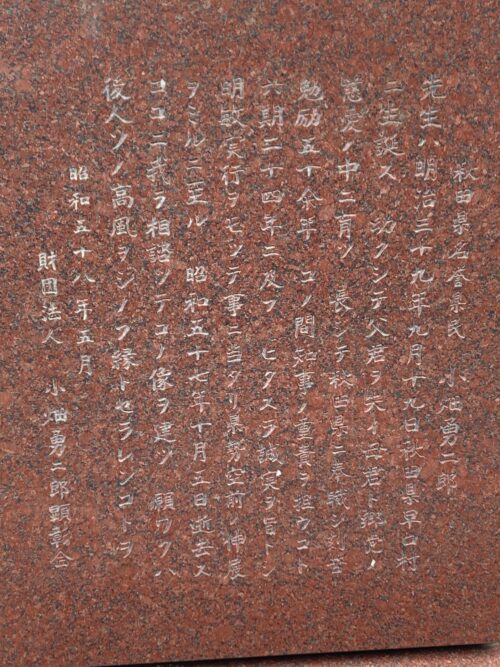 秋田県名誉県民 小畑勇二郎
先生ハ明治三十九年九月十九日秋田県早口村
ニ生誕ス 幼クシテ父君ヲ失イ母君ト郷党ノ
慈愛ノ中ニ育ツ 長シテ秋田県ニ奉職シ刻苦
勉励五十余年 コノ間知事ノ重責ヲ担ウコト
六期二十四年ニ及ブ ヒタスラ誠実ヲ旨トシ
明敏実行ヲモッテ事ニ当タリ県勢空前ノ伸展
ヲミルニ至ル 昭和五十七年十月五日逝去ス
ココニ我ラ相諮ッテコノ像ヲ建ツ 願ワクハ
後人ソノ高風ヲシノブ縁トセラレンコトヲ
昭和五十八年五月
財団法人 小畑勇二郎顕彰会